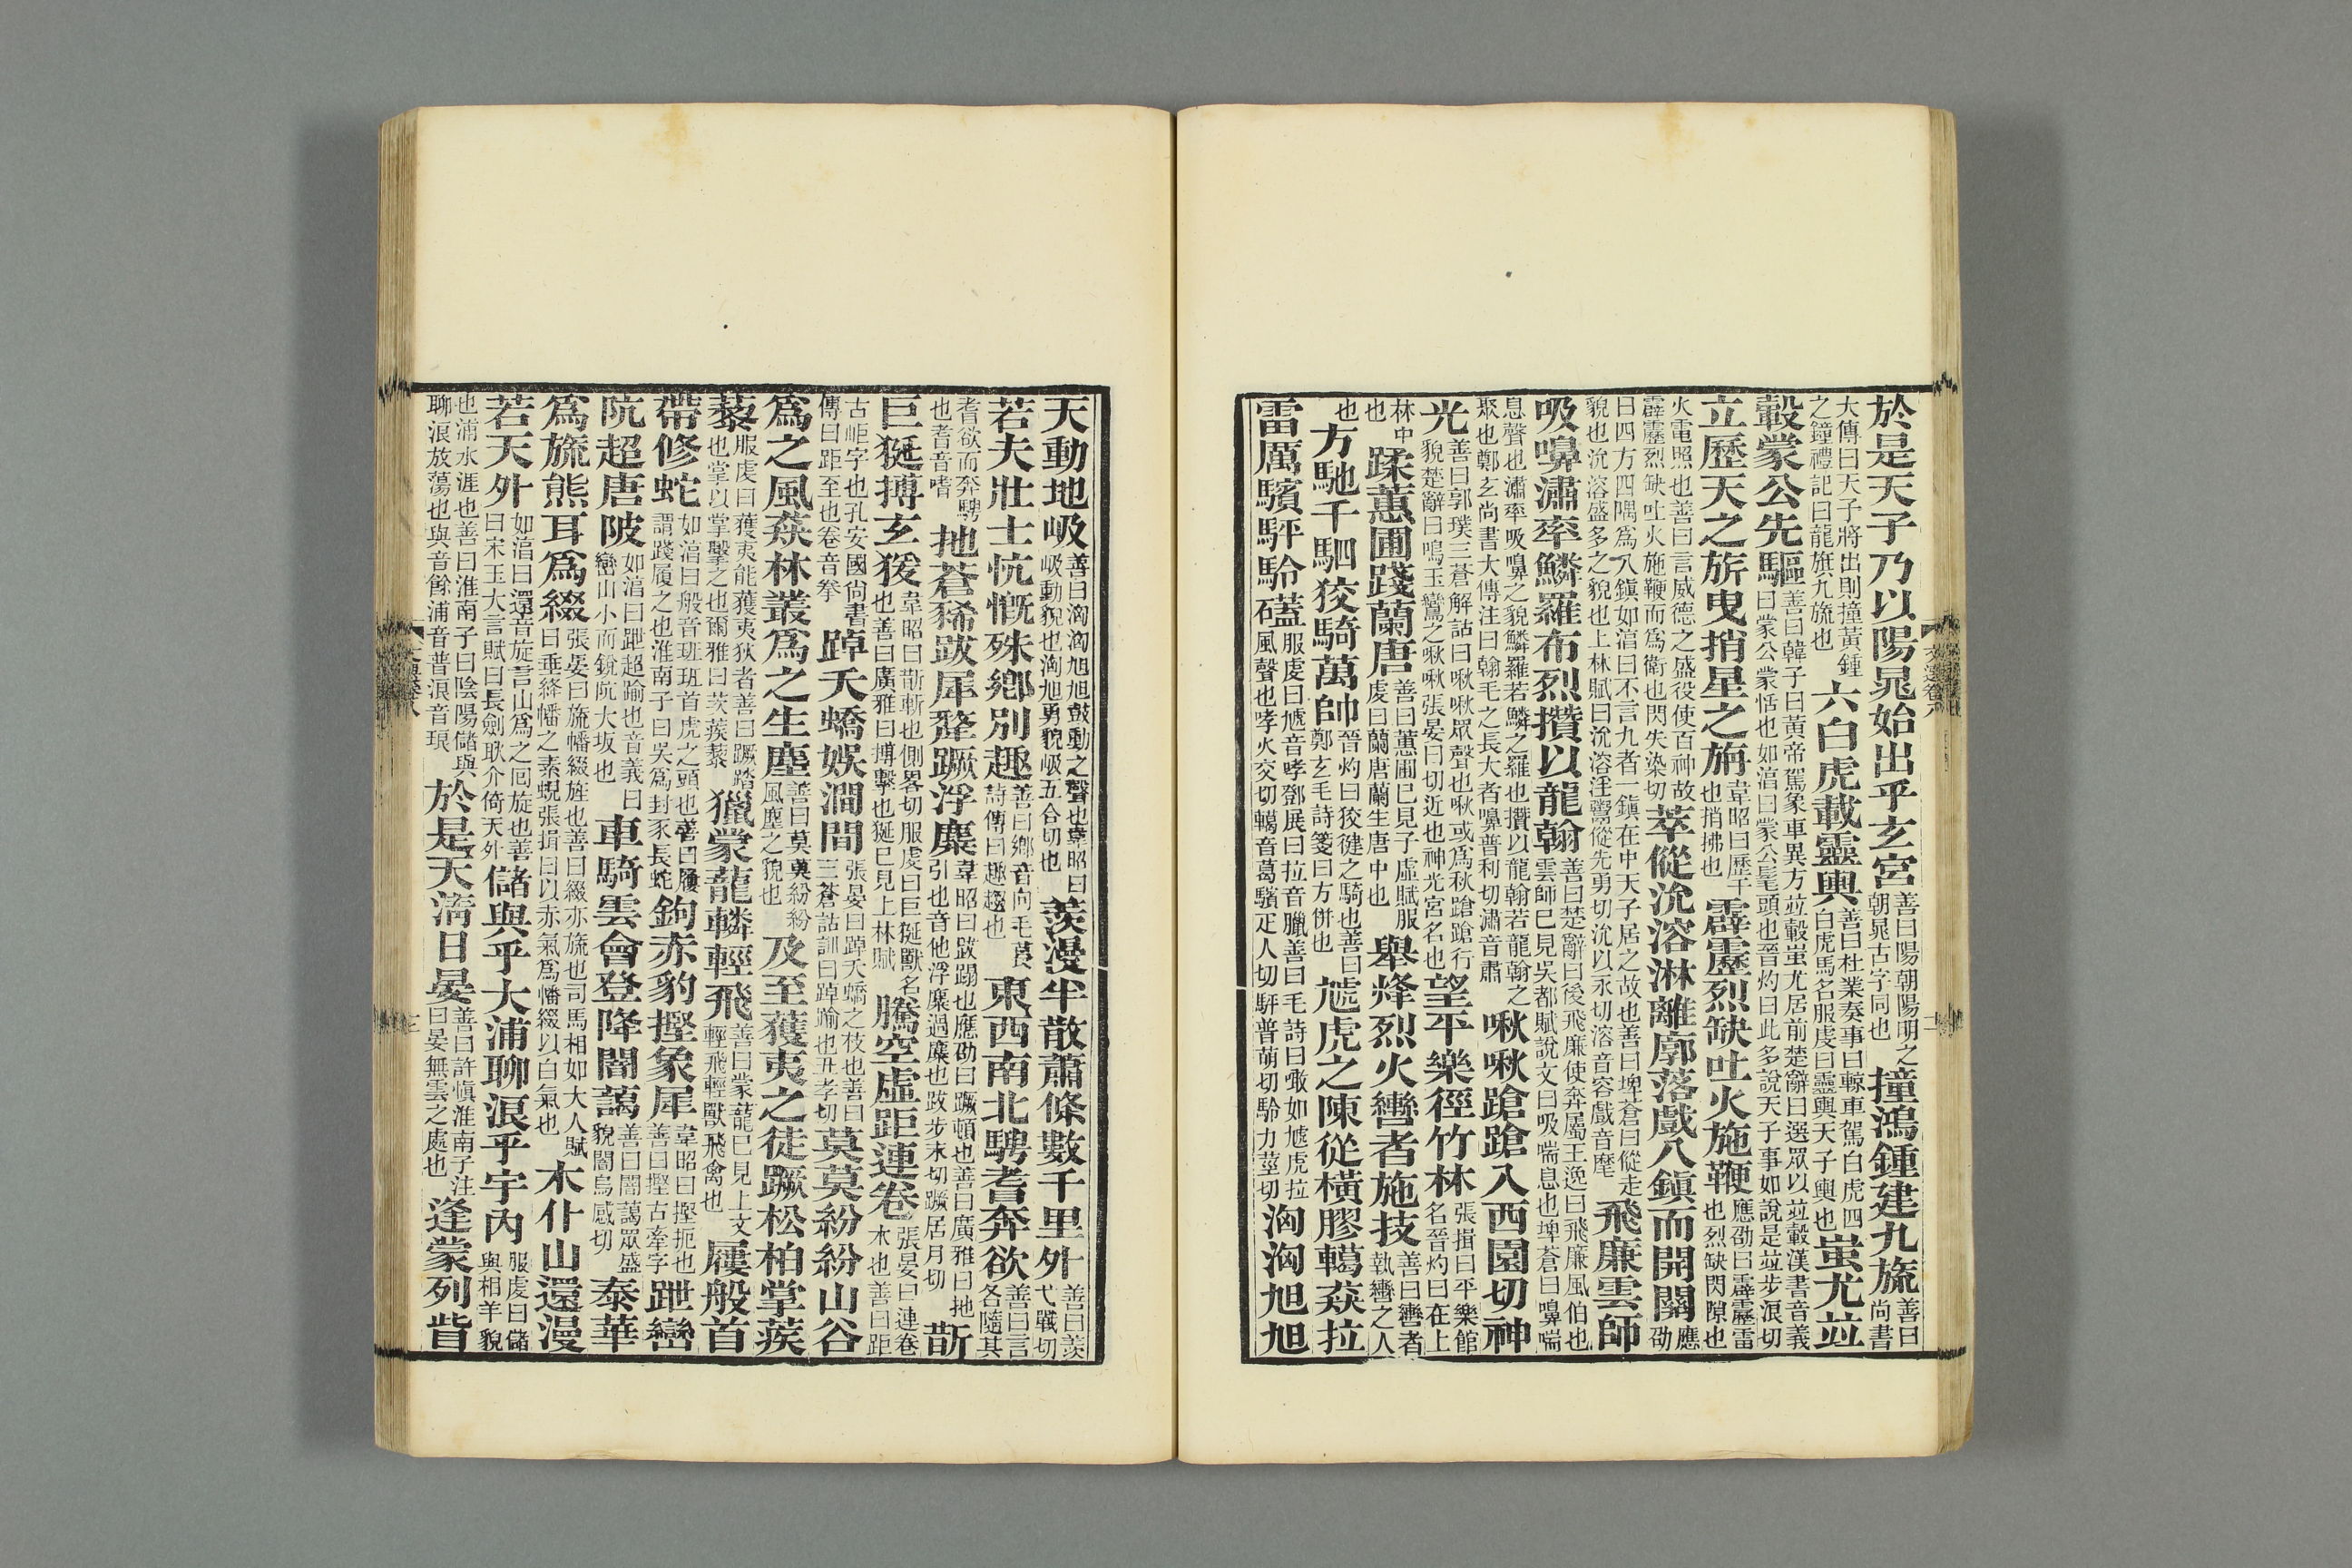 於是天子乃以陽鼂始出乎玄宮善曰陽朝陽明之朝鼂古字同也撞鴻鍾建九旒善曰尚書
大傳曰天子將出則撞黃鍾之鐘禮記曰龍旗九旒也六白虎載靈輿善曰杜業奏事曰輬車駕白虎四白虎馬名服虔曰靈輿天子輿也蚩尤竝
轂蒙公先驅善曰韓子曰黃帝駕象車異方竝轂蚩尤居前楚辭曰選眾以竝轂漢書音義曰蒙公蒙恬也如淳曰蒙公髦頭也晉灼曰此多說天子事如說是竝步浪切
立歷天之旂曳捎星之旃韋昭曰歷干也捎拂也霹靂烈缺吐火施鞭應劭曰霹靂雷也烈缺閃隙也
火電照也善曰言威德之盛役使百神故霹靂烈缺吐火施鞭而為衛也閃失染切萃傱沇溶淋離廓落戲八鎮而開關應劭
曰四方四隅為八鎮如淳曰不言九者一鎮在中天子居之故也善曰埤蒼曰傱走貌也沇溶盛多之貌也上林賦曰沇溶淫鬻傱先勇切沇以永切溶音容戲音麾飛廉雲師
吸嚊瀟率鱗羅布烈攢以龍翰善曰楚辭曰後飛廉使奔屬王逸曰飛廉風伯也雲師已見吳都賦說文曰吸喘息也埤蒼曰嚊喘
息聲也瀟率吸嚊之貌鱗羅若鱗之羅也攢以龍翰若龍翰之聚也鄭玄尚書大傳注曰翰毛之長大者嚊普利切瀟音肅啾啾蹌蹌入西園切神
光善曰郭璞三蒼解詁曰啾啾眾聲也啾或為秋蹌蹌行貌楚辭曰鳴玉鸞之啾啾張晏曰切近也神光宮名也望平樂徑竹林張揖曰平樂館名晉灼曰在上
林中也蹂蕙圃踐蘭唐善曰蕙圃已見子虛賦服虔曰蘭唐蘭生唐中也舉烽烈火轡者施技善曰轡者執轡之人
也方馳千駟狡騎萬帥晉灼曰狡健之騎也善曰鄭玄毛詩箋曰方併也虓虎之陳從橫膠轕猋拉
雷厲驞駍駖磕服虔曰虓音哮鄧展曰拉音臘善曰毛詩曰噉如虓虎拉風聲也哮火交切轕音葛驞疋人切駍普萌切駖力莖切洶洶旭旭
天動地岋善曰洶洶旭旭鼓動之聲也韋昭曰岋動貌也洶旭勇貌岋五合切也羨漫半散蕭條數千里外善曰羨弋戰切
若夫壯士忼慨殊鄉別趣善曰鄉音向毛萇詩傳曰趣趨也東西南北騁耆奔欲善曰言各隨其
耆欲而奔騁也耆音嗜拖蒼豨跋犀犛蹶浮麋韋昭曰跋蹋也應劭曰蹶頓也善曰廣雅曰拖引也音他浮麋過麋也跋步末切蹶居月切斮
巨狿搏玄猨韋昭曰斮斬也側畧切服虔曰巨狿獸名也善曰廣雅曰搏擊也狿已見上林賦騰空虛距連卷張晏曰連卷木也善曰距
古岠字也孔安國尚書傳曰距至也卷音拳踔夭蟜娭澗間張晏曰踔夭蟜之枝也善曰三蒼詁訓曰踔踰也丑孝切莫莫紛紛山谷
為之風猋林叢為之生塵善曰莫莫紛紛風塵之貌也及至獲夷之徒蹶松柏掌蒺
藜服虔曰獲夷能獲夷狄者善曰蹶踏也掌以掌擊之也爾雅曰茨蒺藜獵蒙蘢轔輕飛善曰蒙蘢已見上文輕飛輕獸飛禽也屨般首
帶修蛇如淳曰般音班班首虎之頭也善曰屨謂踐履之也淮南子曰吳為封豕長蛇鉤赤豹摼象犀韋昭曰摼扼也善曰摼古牽字跇巒
阬超唐陂如淳曰跇超踰也音義曰巒山小而銳阬大坂也車騎雲會登降闇藹善曰闇藹眾盛貌闇烏感切泰華
為旒熊耳為綴張晏曰旒幡綴旌也善曰綴亦旒也司馬相如大人賦曰垂絳幡之素蜺張揖曰以赤氣為幡綴以白氣也木仆山還漫
若天外如淳曰還音旋言山為之回旋也善曰宋玉大言賦曰長劍耿介倚天外儲與乎大浦聊浪乎宇內服虔曰儲與相羊貌
也浦水涯也善曰淮南子曰陰陽儲與聊浪放蕩也與音餘浦音普浪音琅於是天清日晏善曰許慎淮南子注曰晏無雲之處也逢蒙列眥